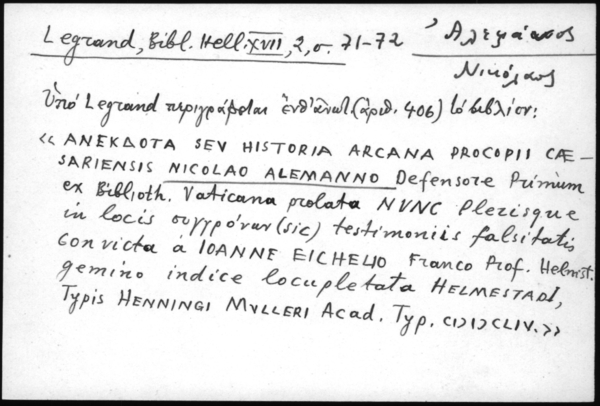 Legrand, Bibl. Hell. XVII, 2, σ. 71-72
Ἀλεμάννος
Νικόλαος
Ὑπὸ Legrand περιγράφεται ἐνθ' ἀνωτ. (ἀριθ. 406) τὸ βιβλίον:
«ANEKDOTA SEV HISTORIA ARCANA PROCOPII CÆ-
SARIENSIS NICOLAO ALEMANNO Defensore Primùm
ex Biblioth. Vaticana prolata NVNC Plerisque
in locis συγγρόνων (sic) testimoniis falsitatis
convicta à IOANNE EICHELIO Franco Prof. Helmst.
gemino indice locupletata HELMESTADI,
Typis HENNINGI MVLLERI Acad. Typ. CIƆIƆCLIV.»